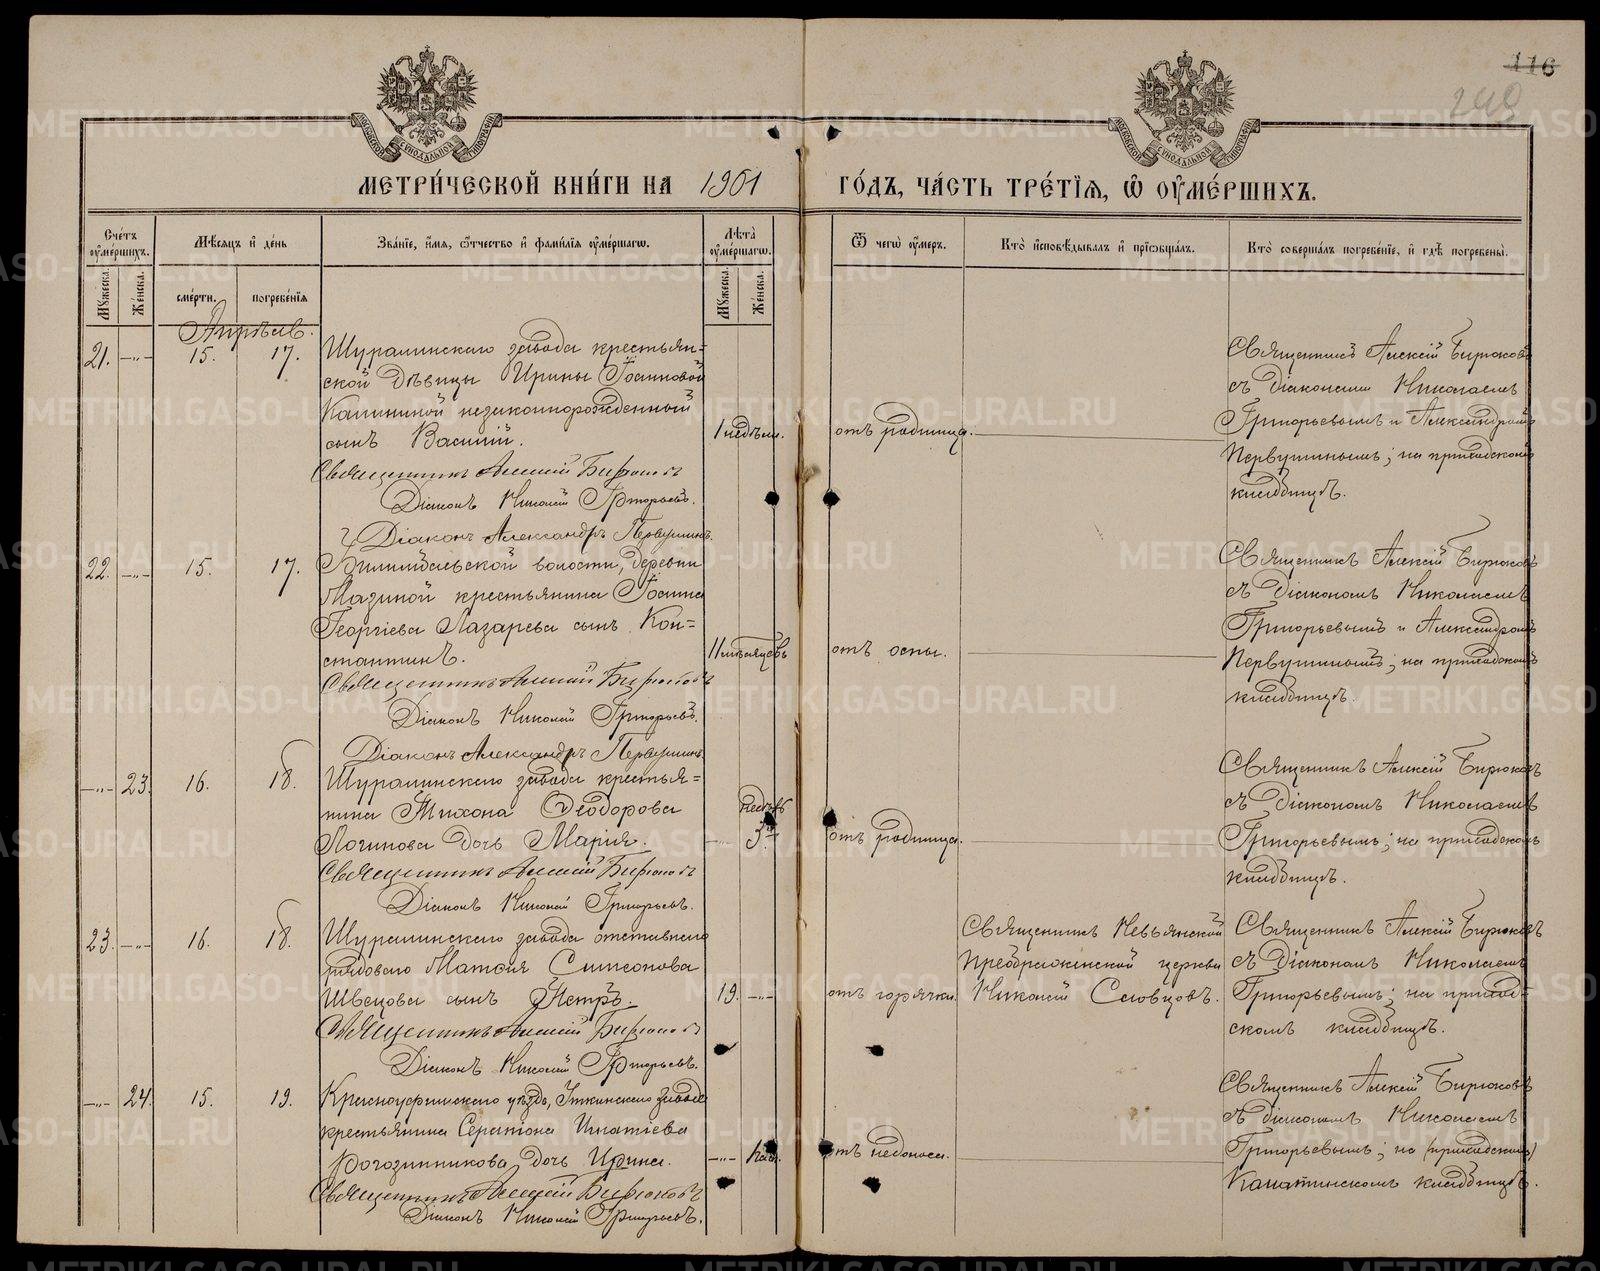 116
МЕТРИ́ЧЕСКОЙ КНИ́ГИ НА 1901 ГО́ДЪ, ЧА́СТЬ ТРЕ́ТЇѦ, Ѡ҆ ОУ҆МЕ́РШИХЪ.
Сче́тъ оу҆ме́ршихъ.
Мѣ́сѧцъ и҆ де́нь
Зва́нїе, и҆́мѧ, ѻ҆́тчество и҆ фами́лїѧ оу҆ме́ршагѡ.
Лѣ́та оу҆ме́ршагѡ.
Ѿ чегѡ̀ оу҆́меръ.
Кто̀ и҆сповѣ́дывалъ и҆ прїѡбща́лъ.
Кто̀ соверша́лъ погребе́нїе, и҆ гдѣ̀ погребены̀.
Мꙋ́жеска. Же́нска. сме́рти. погребе́нїѧ Мꙋ́жеска. Же́нска.
Апрѣль.
21. —„— 15. 17.
Шуралинскаго завода крестьян=
ской дѣвицы Ирины Іоанновой
Калининой незаконнорожденный
сынъ Василій.
Священникъ Алексій Бирюковъ
Діаконъ Николай Григорьевъ.
Діаконъ Александръ Первушинъ.
1 недѣли.
отъ родимца.
Священникъ Алексій Бирюковъ
съ діаконами Николаемъ
Григорьевымъ и Александромъ
Первушинымъ; на приходскомъ
кладбищѣ.
22. —„— 15. 17.
Билимбаевской волости, деревни
Мазиной крестьянина Іоанна
Георгіева Лазарева сынъ Кон=
стантинъ.
Священникъ Алексій Бирюковъ
Діаконъ Николай Григорьевъ.
Діаконъ Александръ Первушинъ.
11 мѣсяцевъ
отъ оспы.
Священникъ Алексій Бирюковъ
съ діакономъ Николаемъ
Григорьевымъ и Александромъ
Первушинымъ; на приходскомъ
кладбищѣ.
—„— 23. 16. 18.
Шуралинскаго завода крестья=
нина Тихона Ѳеодорова
Логинова дочь Марія.
Священникъ Алексій Бирюковъ
Діаконъ Николай Григорьевъ.
недѣль
3.
отъ родимца.
Священникъ Алексій Бирюковъ
съ діакономъ Николаемъ
Григорьевымъ; на приходскомъ
кладбищѣ.
23. —„— 16. 18.
Шуралинскаго завода отставнаго
рядоваго Матѳія Симеонова
Швецова сынъ Петръ.
Священникъ Алексій Бирюковъ
Діаконъ Николай Григорьевъ.
19. —„—
отъ горячки.
Священникъ Невьянской
Преображенской церкви
Николай Словцовъ.
Священникъ Алексій Бирюковъ
съ діакономъ Николаемъ
Григорьевымъ; на приход-
скомъ кладбищѣ.
—„— 24. 15. 19.
Красноуфимскаго уѣзда, Уткинскаго завода
крестьянина Серапіона Игнатіева
Рогозинникова дочь Ирина.
Священникъ Алексій Бирюковъ
Діаконъ Николай Григорьевъ.
—„—
отъ недоноса.
Священникъ Алексій Бирюковъ
съ діакономъ Николаемъ
Григорьевымъ; на (приходскомъ)
кладбищѣ.
METRIKI.GASO-URAL.RU